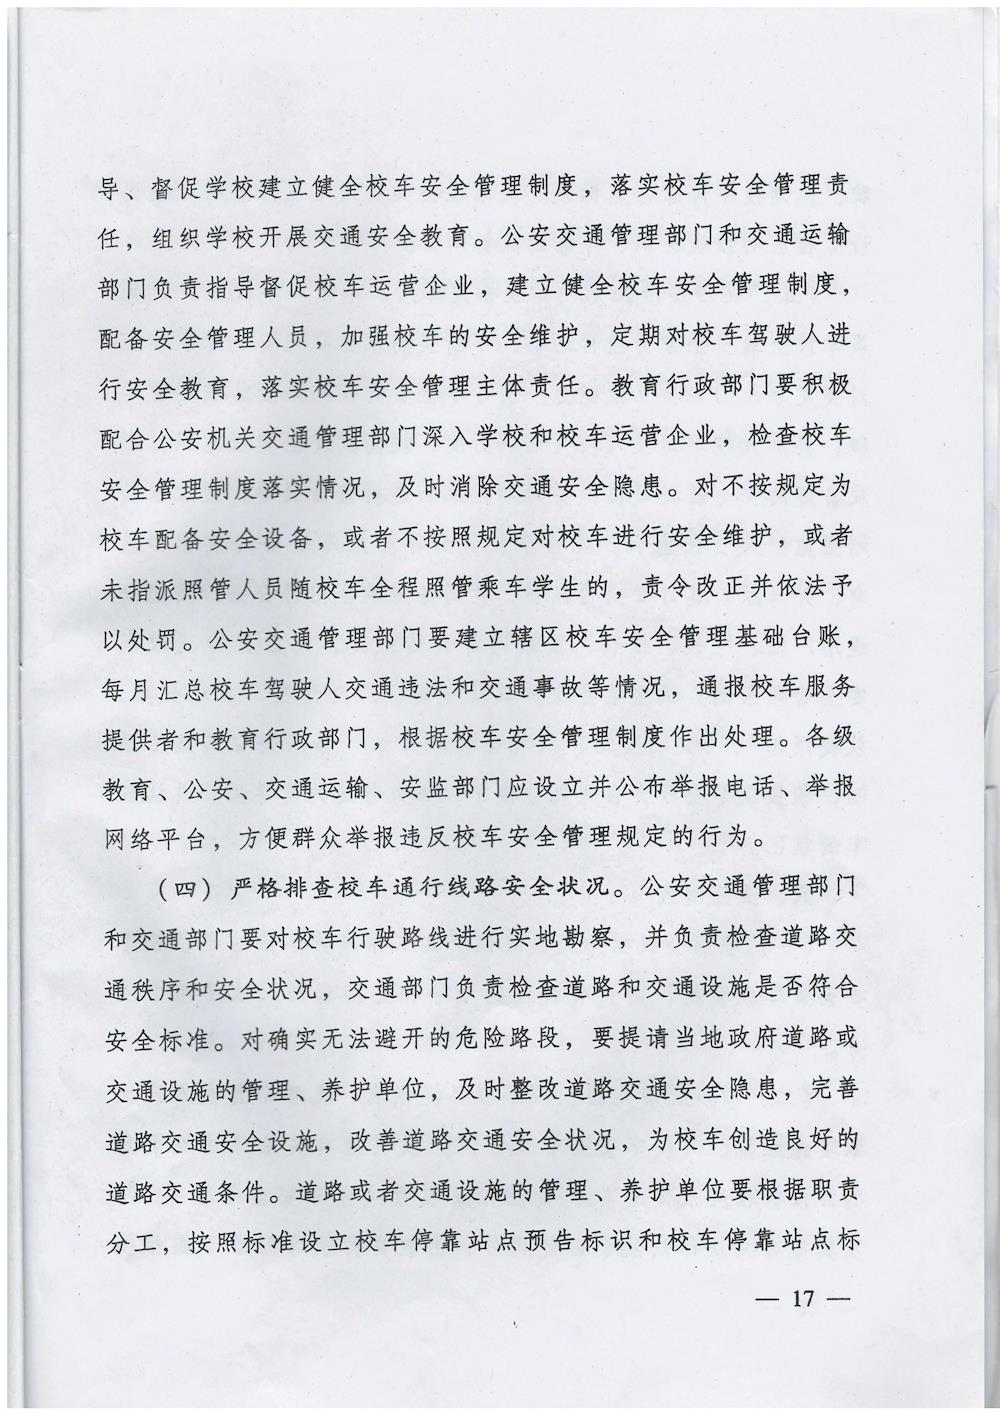 导、督促学校建立健全校车安全管理制度，落实校车安全管理责
任，组织学校开展交通安全教育。公安交通管理部门和交通运输
部门负责指导督促校车运营企业，建立健全校车安全管理制度，
配备安全管理人员，加强校车的安全维护，定期对校车驾驶人进
行安全教育，落实校车安全管理主体责任。教育行政部门要积极
配合公安机关交通管理部门深入学校和校车运营企业，检查校车
安全管理制度落实情况，及时消除交通安全隐患。对不按规定为
校车配备安全设备，或者不按照规定对校车进行安全维护，或者
未指派照管人员随校车全程照管乘车学生的，责令改正并依法予
以处罚。公安交通管理部门要建立辖区校车安全管理基础台账，
每月汇总校车驾驶人交通违法和交通事故等情况，通报校车服务
提供者和教育行政部门，根据校车安全管理制度作出处理。各级
教育、公安、交通运输、安监部门应设立并公布举报电话、举报
网络平台，方便群众举报违反校车安全管理规定的行为。
（四）严格排查校车通行线路安全状况。公安交通管理部门
和交通部门要对校车行驶路线进行实地勘察，并负责检查道路交
通秩序和安全状况，交通部门负责检查道路和交通设施是否符合
安全标准。对确实无法避开的危险路段，要提请当地政府道路或
交通设施的管理、养护单位，及时整改道路交通安全隐患，完善
道路交通安全设施，改善道路交通安全状况，为校车创造良好的
道路交通条件。道路或者交通设施的管理、养护单位要根据职责
分工，按照标准设立校车停靠站点预告标识和校车停靠站点标
— 17 —